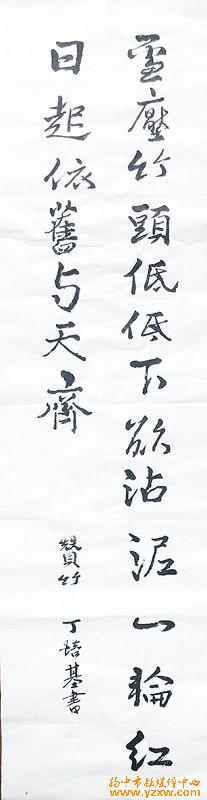 雪壓竹頭低低下欲沾泥一輪紅
日起依舊与天齊
贊竹　丁培基書
扬中市融媒体中心
www.yzxw.com